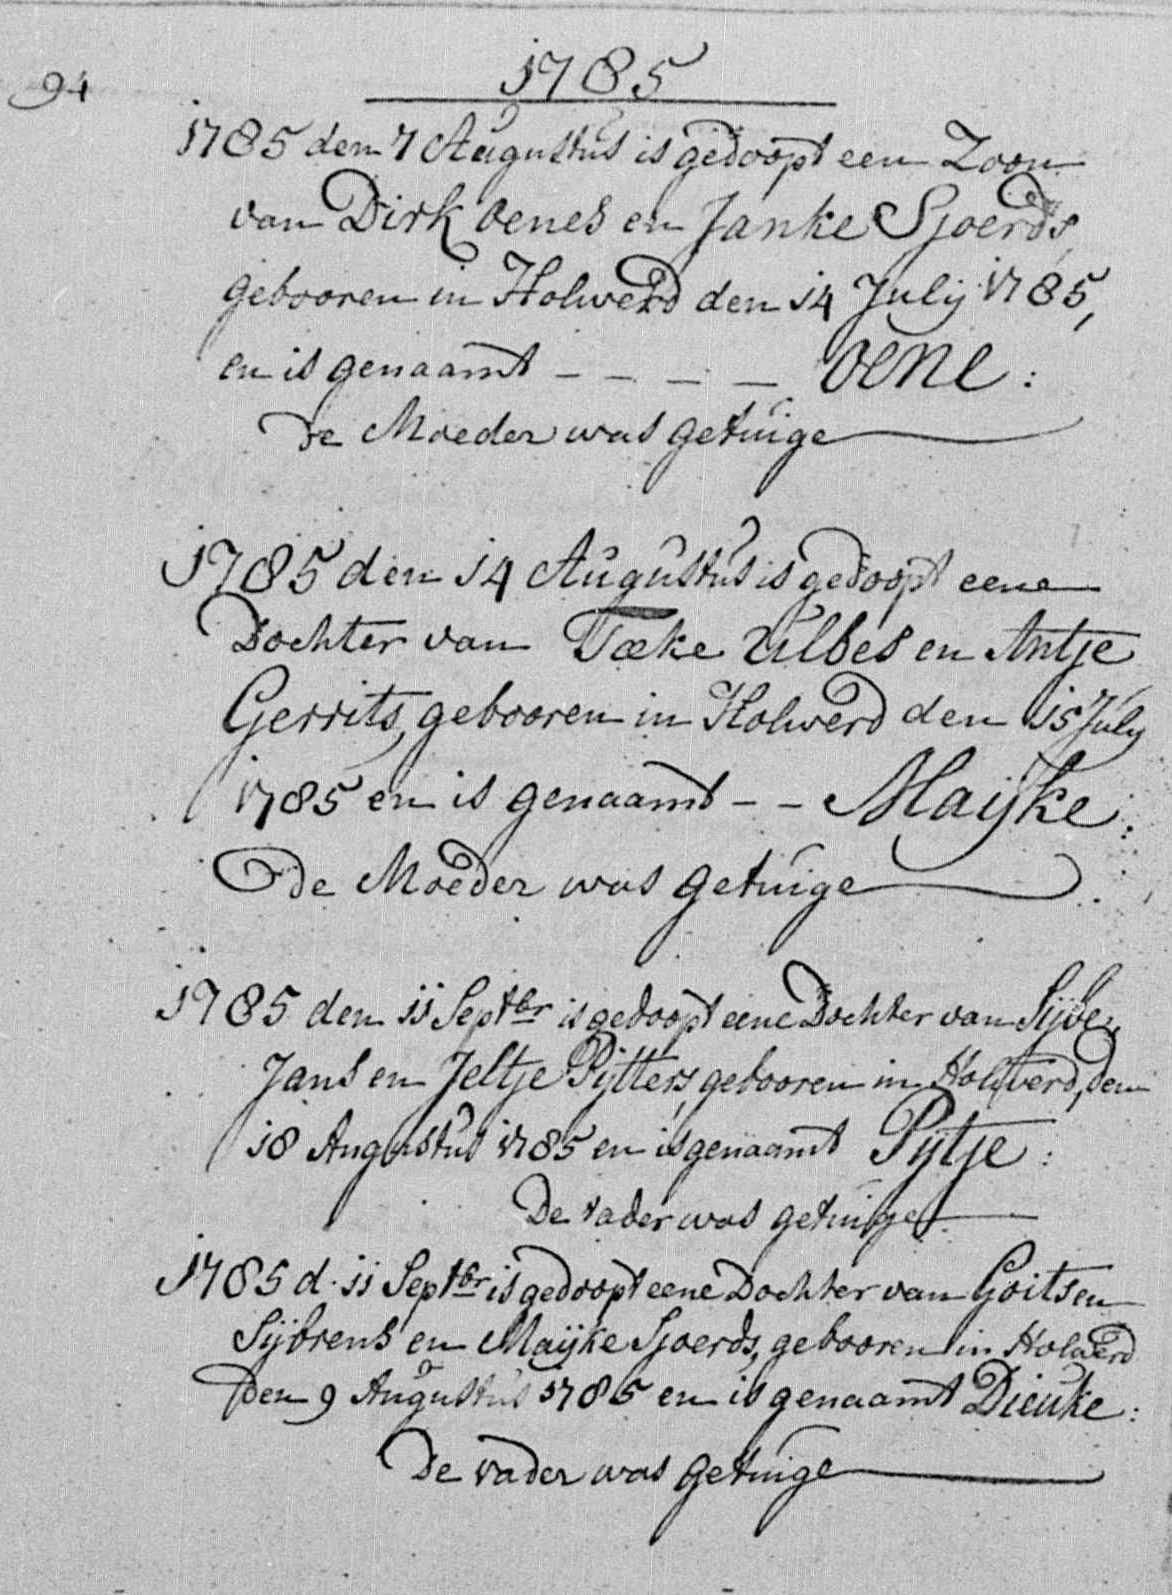 94
1785
1785 den 7 Augustus is gedoopt een Zoon
van Dirk Oenes en Janke Sjoerds,
gebooren in Holwerd den 14 July 1785,
en is genaamt - - - - Oene:
De Moeder was getuige
1785 den 14 Augustus is gedoopt eene
Dochter van Tæke Ulbes en Antje
Gerrits, gebooren in Holwerd den 15 July
1785 en is genaamt - - Maijke:
De Moeder was getuige
1785 den 11 Septbr is gedoopt eene Dochter van
Jans en Jeltje Pijtters, gebooren in Holwerd, den
18 Augustus 1785 en is genaamt Pijtje:
De vader was getuige
1785 d. 11 Septbr is gedoopt eene Dochter van Goitsen
Sijbrens en Maijke Sjoerds, gebooren in Holwerd
den 9 Augustus 1785 en is genaamt Dieuke:
De vader was getuige